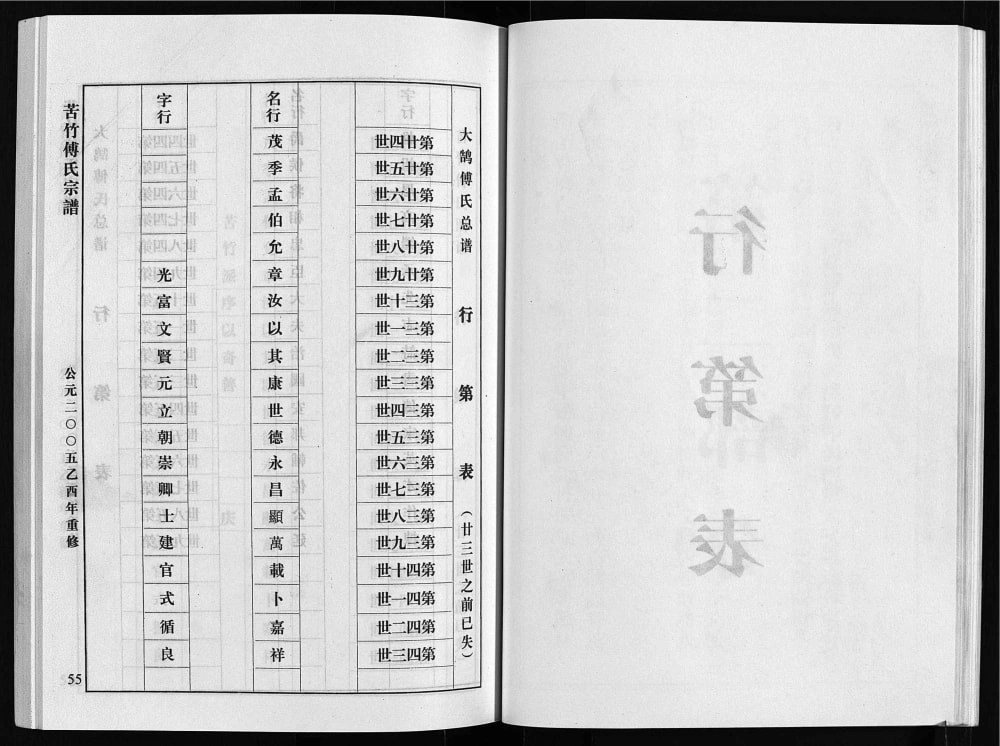 大鹄傅氏总谱 行第表（廿三世之前已失）
第廿四世
第廿五世
第廿六世
第廿七世
第廿八世
第廿九世
第三十世
第三一世
第三二世
第三三世
第三四世
第三五世
第三六世
第三七世
第三八世
第三九世
第四十世
第四一世
第四二世
第四三世
名行
茂
季
孟
伯
允
章
汝
以
其
康
世
德
永
昌
顯
萬
載
卜
嘉
祥
字行
光
富
文
賢
元
立
朝
崇
卿
士
建
官
式
循
良
苦竹傅氏宗譜
公元二〇〇五乙酉年重修
55
行第表